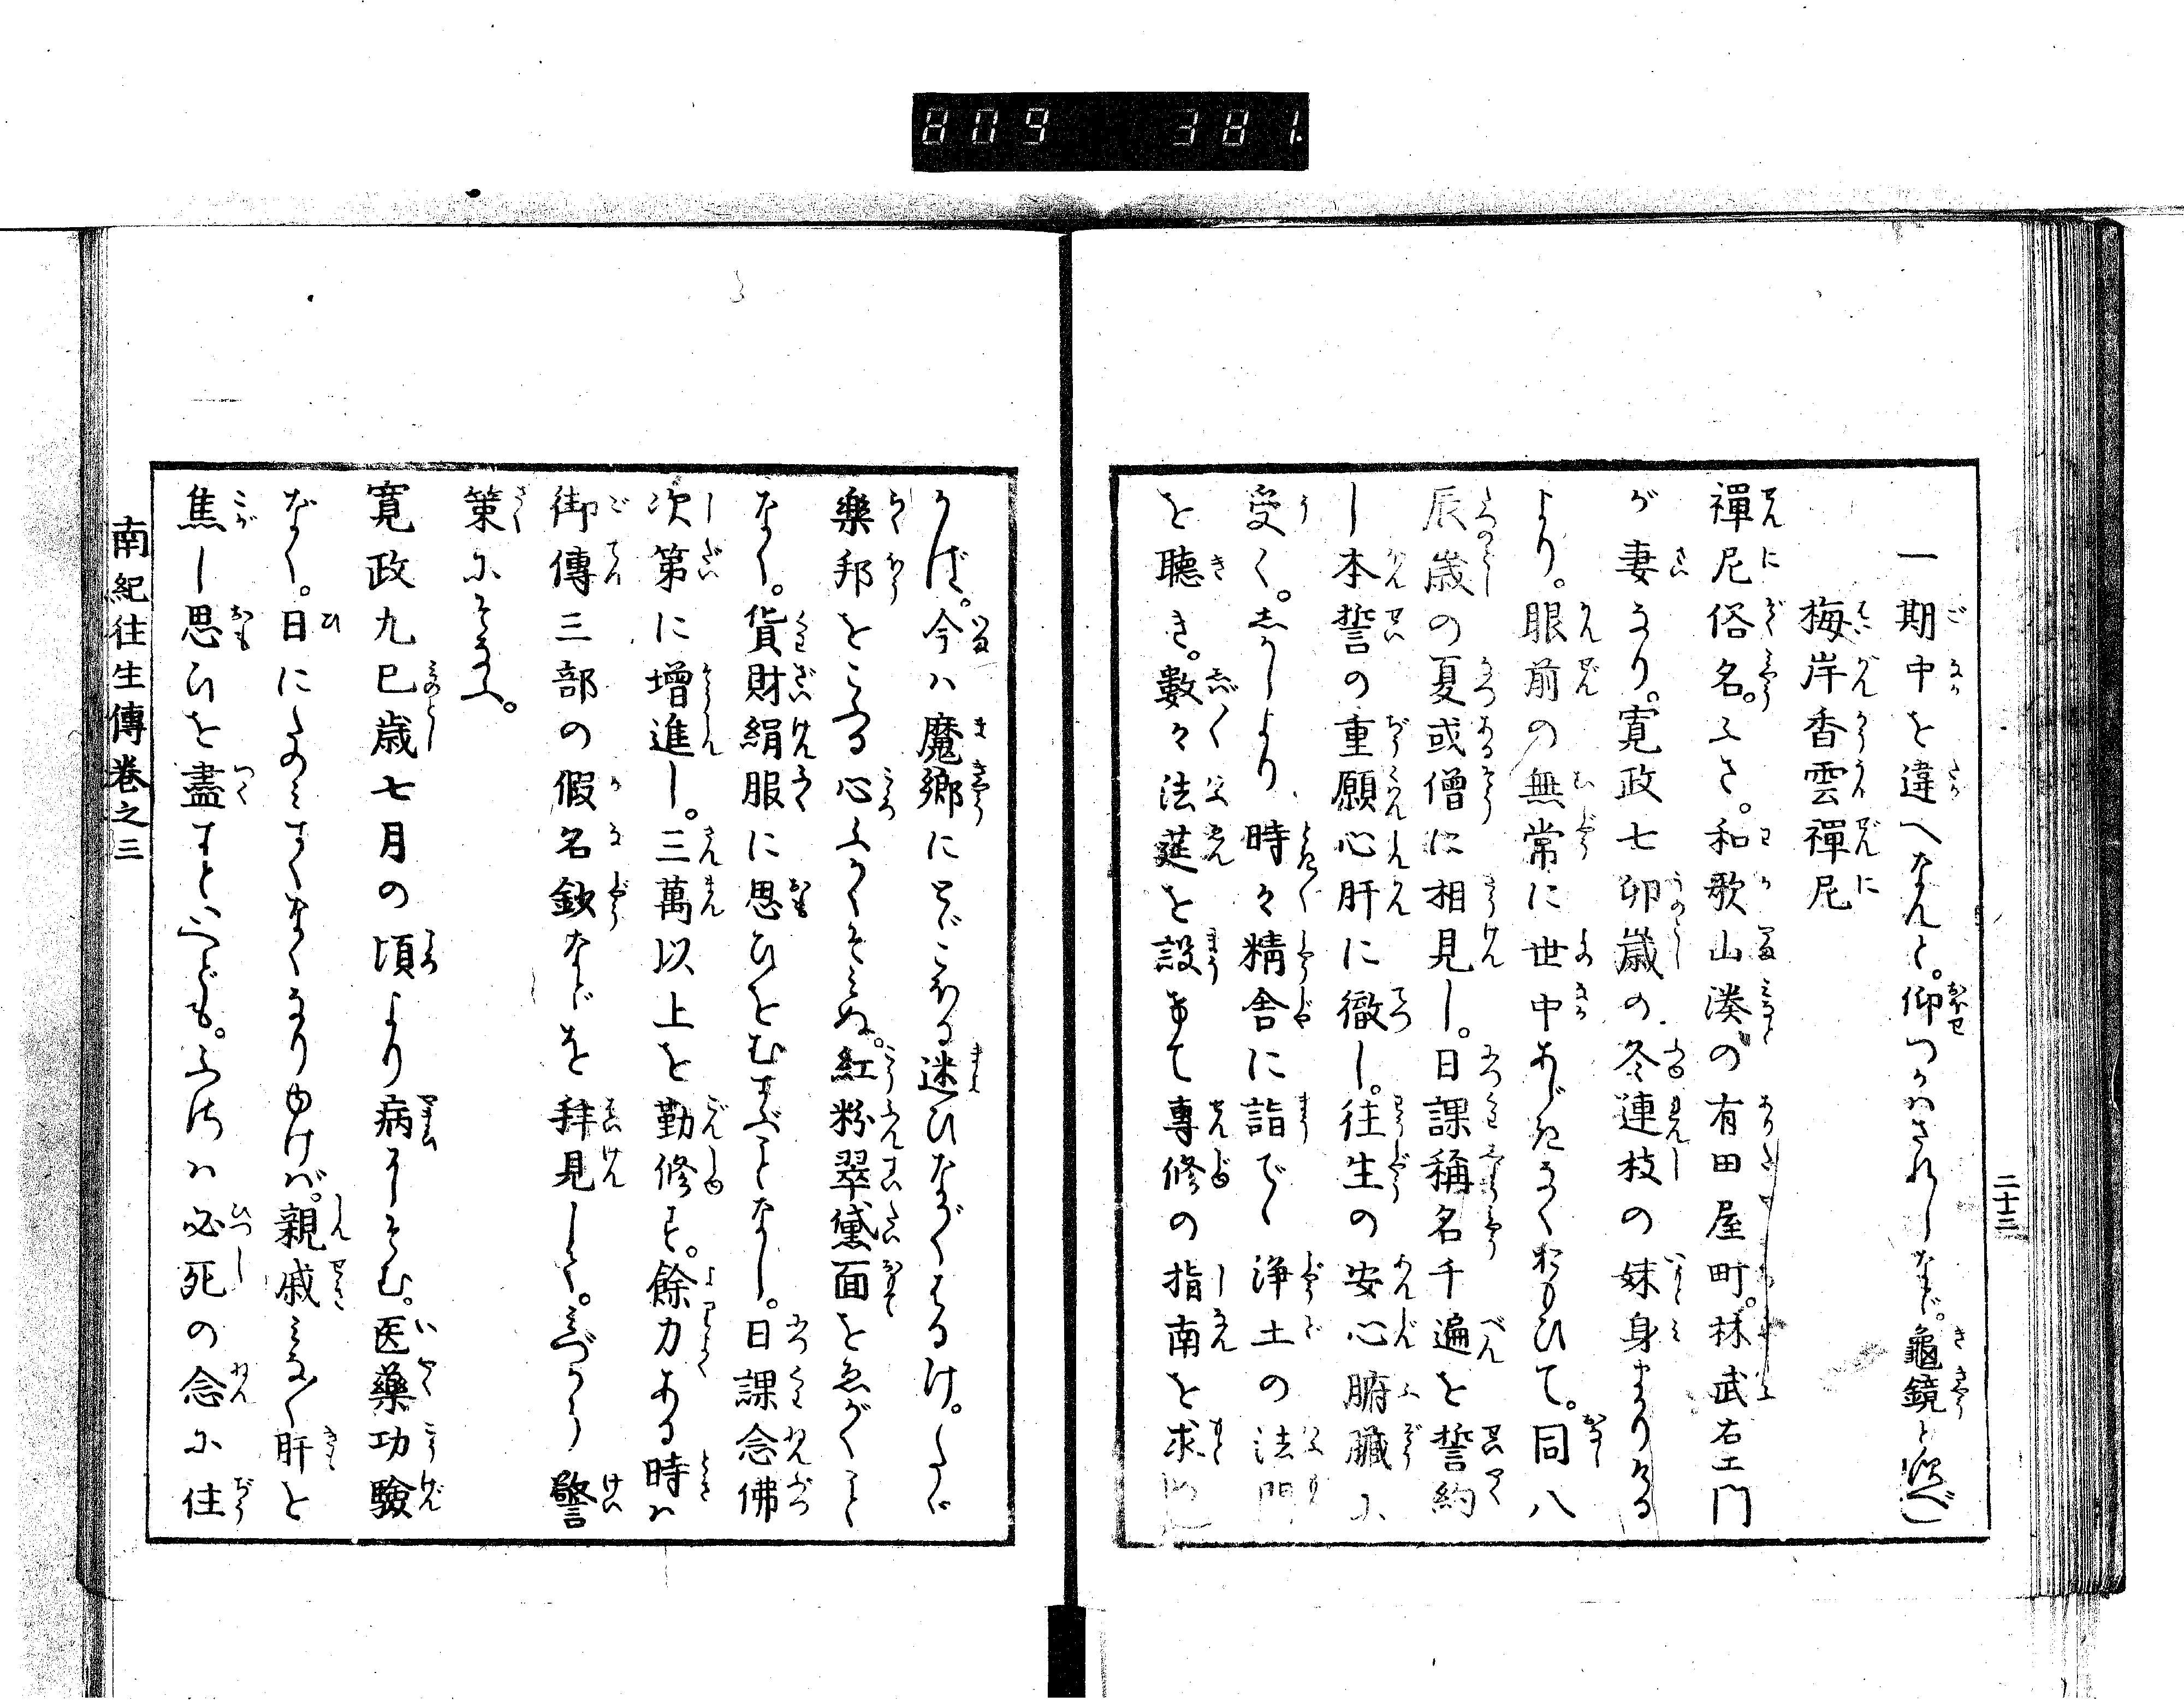 809 381.
二十三
一期中を違へなんと。仰つかはされしなど。龜鏡と須べし
梅岸香雲禪尼
禪尼俗名。ふさ。和歌山湊の有田屋町。林武右エ門
が妻なり。寛政七卯歳の冬連枝の妹身まかりける
より。眼前の無常に世中あぢきなくおもひて。同八
辰歳の夏或僧に相見し。日課稱名千遍を誓約
し本誓の重願心肝に徹し。往生の安心腑臓に
受く。しかしより時々精舎に詣で、浄土の法門
を聴き。數々法莚を設けて專修の指南を求
かば。今ハ魔郷にとゞこほる迷ひながくはるけ。たゞ
樂邦をこふる心ふかくそみぬ。紅粉翠黛面をゑがくこと
なく。貨財絹服に思ひをむすぶことなし。日課念佛
次第に増進し。三萬以上を勤修す。餘力ある時ハ
御傳三部の假名鈔などを拜見して。みづから警
策にそなふ。
寛政九巳歳七月の頃より病にしづむ。医藥功驗
なく。日にたのみすくなくなりゆけば。親戚みな〳〵肝を
焦し思ひを盡すといへども。ふさハ必死の念に住
南紀往生傳巻之三